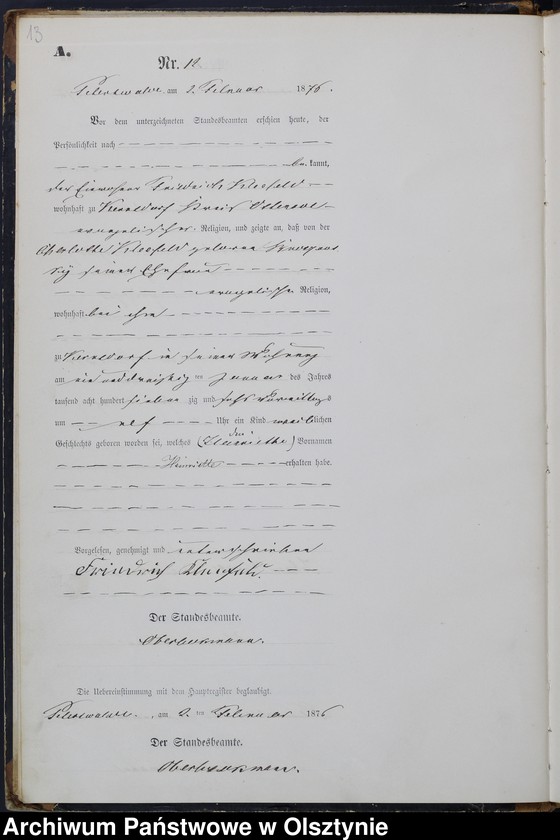 13
A.
Nr. 12.
Peterswalde am 2. Februar 1876.
Vor dem unterzeichneten Standesbeamten erschien heute, der
Persönlichkeit nach
bekannt,
der Einwohner Friedrich Kleefeld
wohnhaft zu Kreis
evangelischer Religion, und zeigte an, daß von der
Charlotte Kleefeld geborene
seiner Ehefrau
evangelischer Religion,
wohnhaft bei ihm
zu in seiner Wohnung
am ein und dreißigten Januar des Jahres
tausend acht hundert siebenzig und sechs Vormittags
um elf Uhr ein Kind weiblichen
Geschlechts geboren worden sei, welches (Henriette) den Vornamen
Henriette erhalten habe.
Vorgelesen, genehmigt und unterschrieben
Friedrich Kleefeld.
Der Standesbeamte.
Die Uebereinstimmung mit dem Hauptregister beglaubigt.
Peterswalde, am 2. ten Februar 1876
Der Standesbeamte.
Archiwum Państwowe w Olsztynie